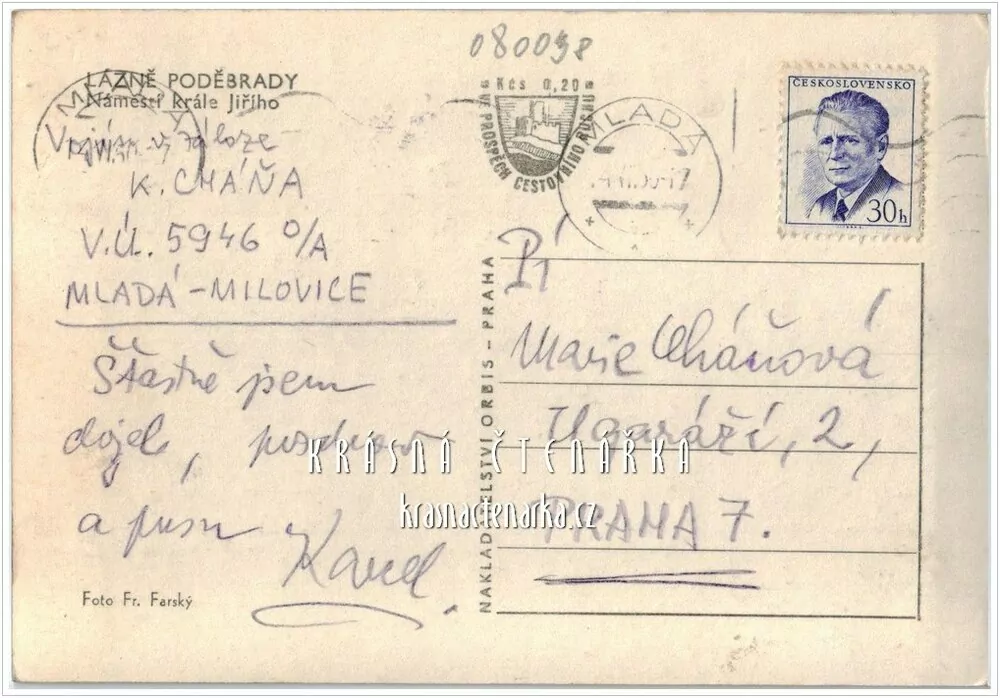 080098
LÁZNĚ PODĚBRADY
Náměstí krále Jiřího
Kčs 0,20
VE PROSPĚCH CESTOVNÍHO RUCHU
MLADÁ
ČESKOSLOVENSKO
30h
Vojín v záloze
K. CHÁŇA
V.Ú. 5946 O/A
MLADÁ-MILOVICE
Šťastně jsem
dojel, pozdrav
a pusu
Karel
Foto Fr. Farský
NAKLADATELSTVÍ ORBIS - PRAHA
Pí
Marie Cháňová
2,
PRAHA 7.
KRÁSNÁ ČTENÁŘKA
krasnactenarka.cz